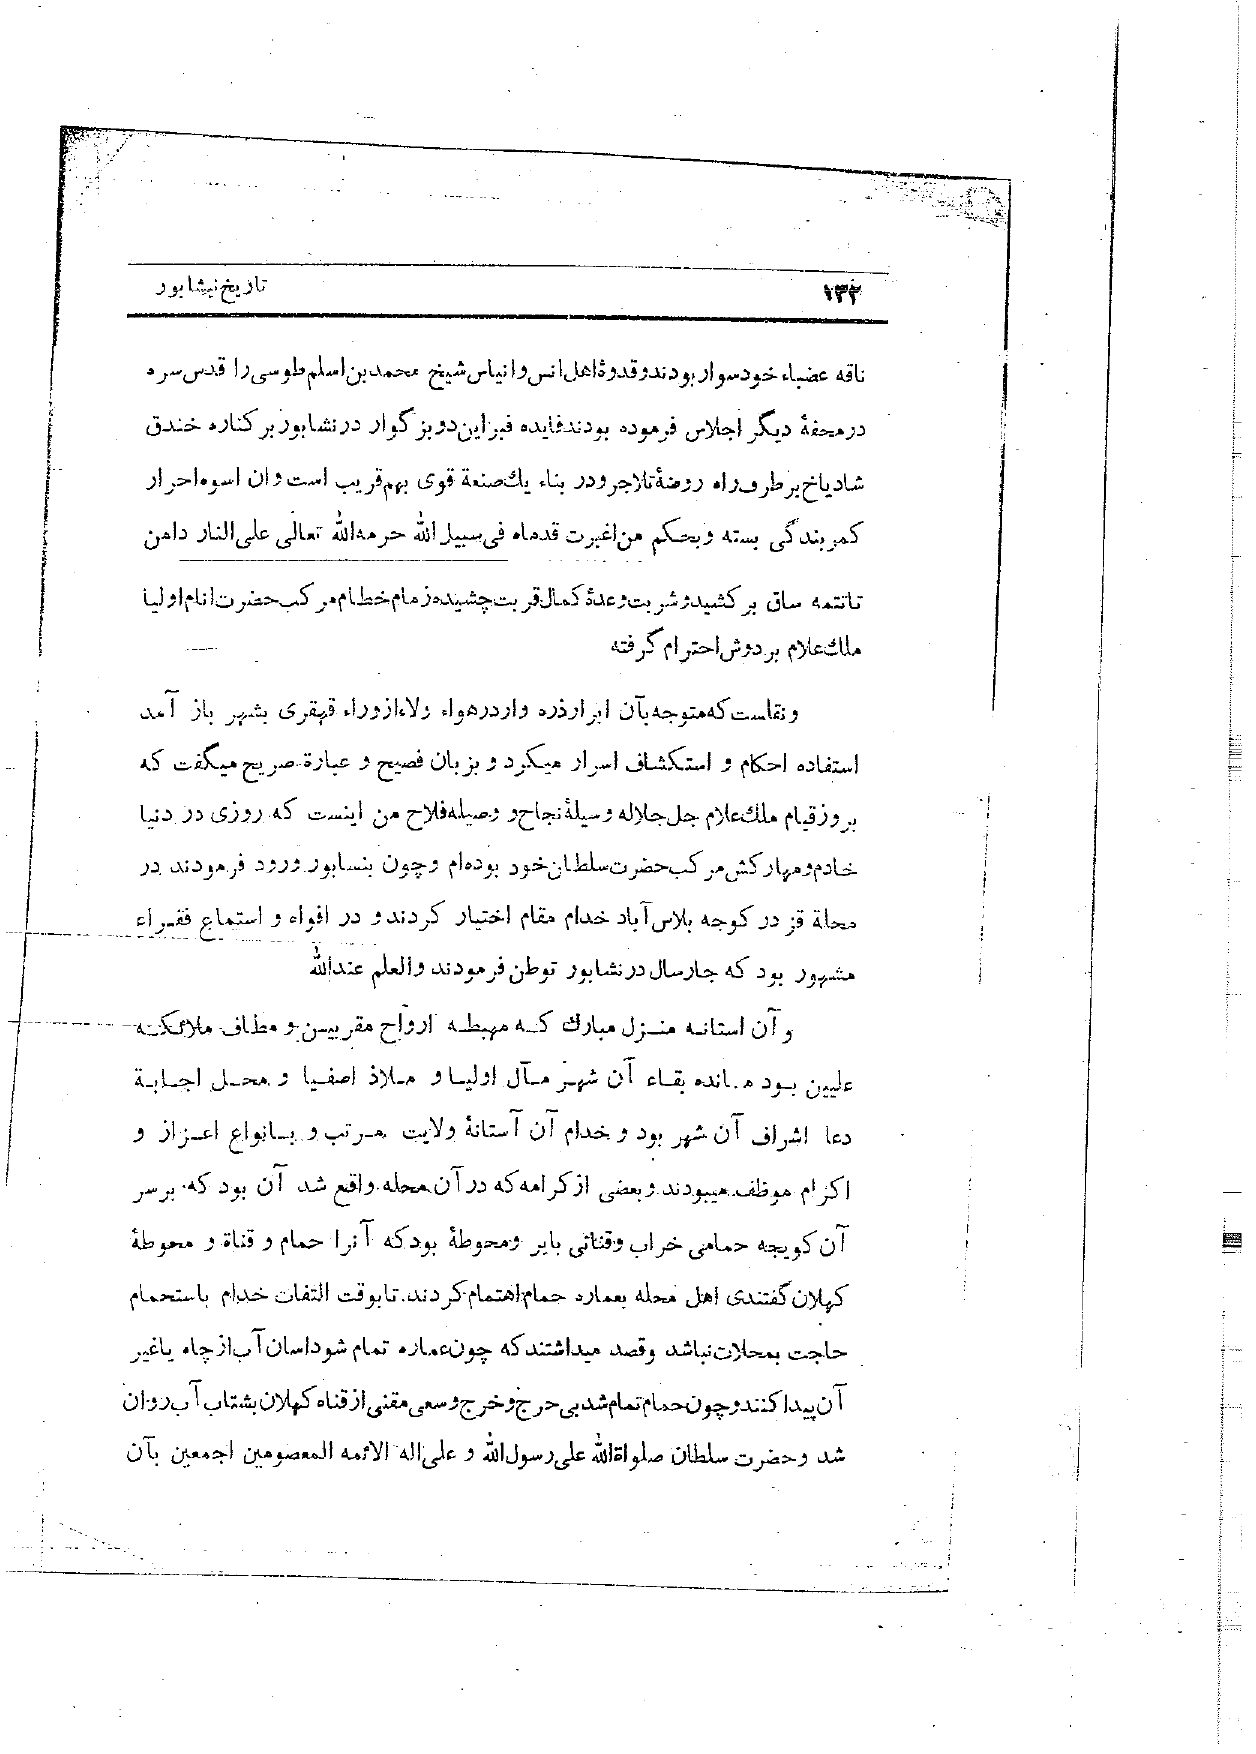 ۱۳۲
تاریخ نیشابور
ناقه عضباء خود سوار بودند و قدوة اهل انس و انیاس شیخ محمد بن اسلم طوسی را قدس سره
در محفهٔ دیگر اجلاس فرموده بودند فایده قبر این دو بزگوار در نشابور بر کناره خندق
شادیاخ بر طرف راه روضهٔ تلاجرودر بناء یك صنعة قوی بهم قریب است و ان اسوه احرار
کمر بندگی بسته و بحکم من اغبرت قدماه فی سبیل الله حرمه الله تعالی علی النار دامن
تا تتمه ساق بر کشید و شربت وعدهٔ کمال قربت چشیده زمام خطام مرکب حضرت انام اولیا
ملك علام بر دوش احترام گرفته
و نقلست که متوجه بآن ابرار ذره وار در هواء ولاء از وراء قهقری بشهر باز آمد
استفاده احکام و استکشاف اسرار میکرد و بزبان فصیح و عبارة صریح میگفت که
بروز قیام ملك علام جل جلاله وسیلهٔ نجاح و وصیله فلاح من اینست که روزی در دنیا
خادم و مهار کش مرکب حضرت سلطان خود بوده‌ام و چون بنسابور ورود فرمودند در
محلة قز در کوجه بلاس آباد خدام مقام اختیار کردند و در افواه و استماع فقراء
مشهور بود که جارسال در نشابور توطن فرمودند والعلم عندالله
و آن استانه منزل مبارك که مهبطه ارواح مقربین و مطاف ملائکته
علیین بود مانده بقاء آن شهر مآل اولیا و ملاذ اصفیا و محل اجابة
دعا اشراف آن شهر بود و خدام آن آستانهٔ ولایت مرتب و بانواع اعزاز و
اکرام موظف میبودند و بعضی از کرامه که در آن محله واقع شد آن بود که برسر
آن کویچه حمامی خراب و قناتی بایر و محوطهٔ بود که آنرا حمام و قناة و محوطهٔ
کهلان گفتندی اهل محله بعماره حمام اهتمام کردند. تا بوقت التفات خدام باستحمام
حاجت بمحلات نباشد وقصد میداشتند که چون عماره تمام شود اسان آب از چاه یا غیر
آن پیدا کنند و چون حمام تمام شد بی حرج و خرج و سعی مقنی از قناه کهلان بشتاب آب روان
شد و حضرت سلطان صلواة الله علی رسول الله و علی اله الائمه المعصومین اجمعین بآن